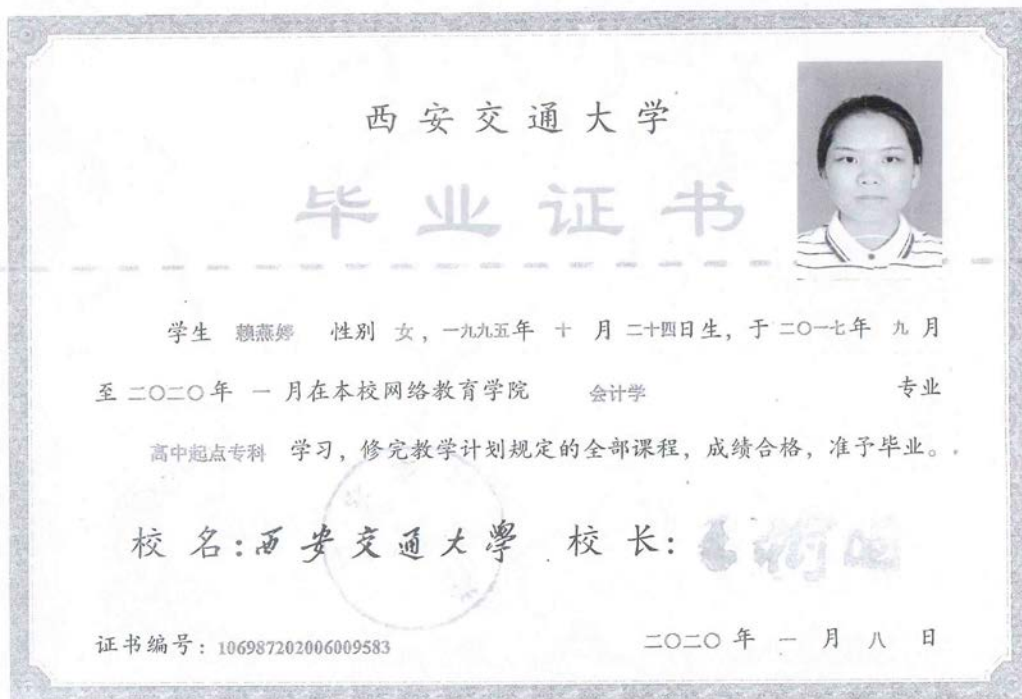 西安交通大学
毕业证书
学生 赖燕婷 性别 女，一九九五年 十 月 二十四日生，于 二〇一七年 九 月
至 二〇二〇年 一 月在本校网络教育学院 会计学 专业
高中起点专科 学习，修完教学计划规定的全部课程，成绩合格，准予毕业。
校 名：西安交通大學 校 长：
证书编号：106987202006009583 二〇二〇 年 一 月 八 日